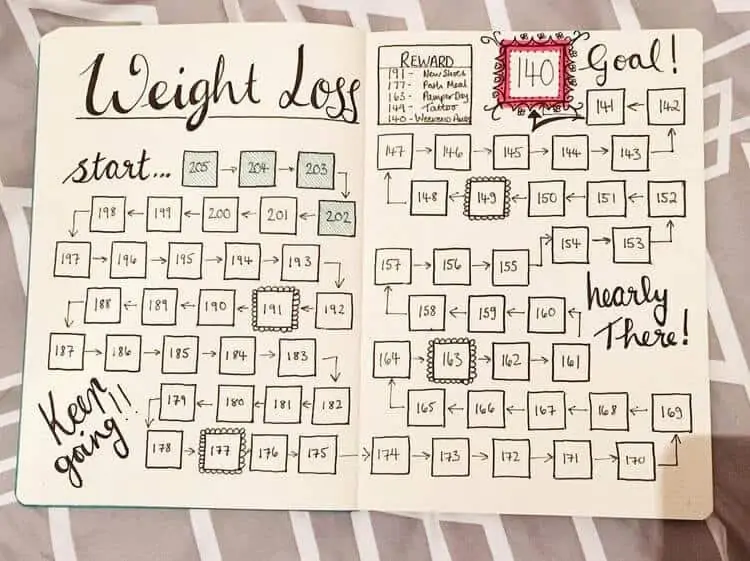 Weight Loss
start... 205 204 203
198 199 200 201 202
197 196 195 194 193
188 189 190 191 192
187 186 185 184 183
179 180 181 182
Keep
going!!
178 177 176 175
REWARD
191 - New Shoes
177 - Path Meal
163 - Pamper Day
149 - Tattoo
140 - Weekend Away
140
Goal!
141 142
147 146 145 144 143
148 149 150 151 152
154 153
157 156 155
nearly
There!
158 159 160
164 163 162 161
165 166 167 168 169
174 173 172 171 170